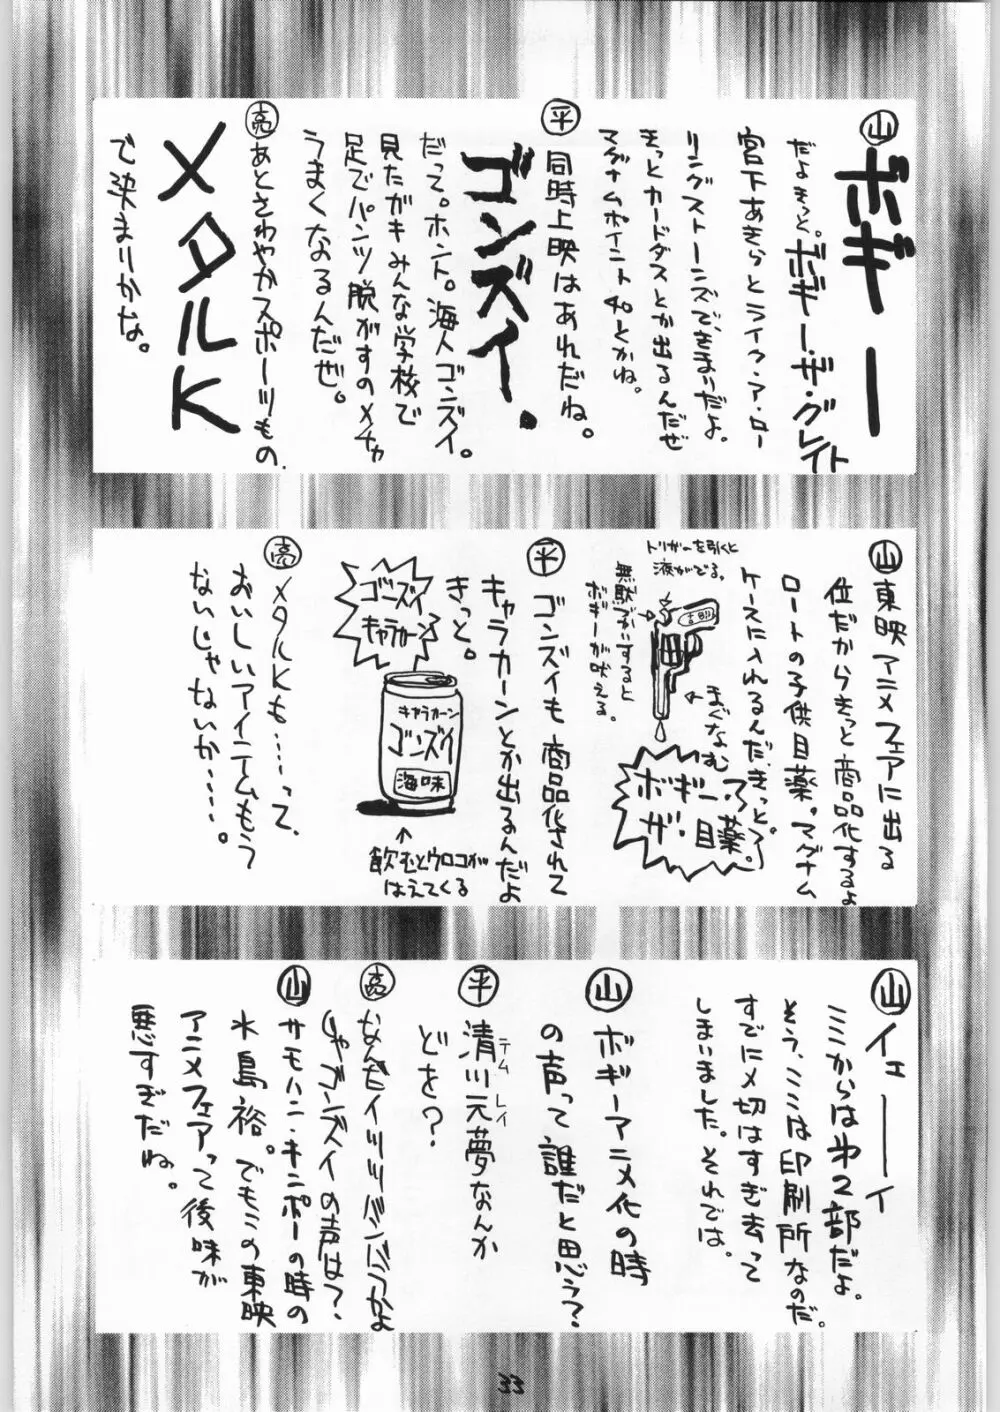 山 ボギー
だよきっと。ボギー・ザ・グレイト
宮下あきらとライク・ア・ロー
リングストーンズできまりだよ。
きっとカードダスとか出るんだぜ
マグナムポイント40とかね。
平 同時上映はあれだね。
ゴンズイ.
だって。ホント。海人ゴンズイ。
見たがキみんな学校で
足でパンツ脱がすのメチャ
うまくなるんだぜ。
亮 あとさわやかスポーツもの.
メタルK
で決まりかな。
山 東映アニメフェアに出る
位だからきっと商品化するよ
ロートの子供目薬。マグナム
ケースに入れるんだ、きっと。
トリガーを引くと
液がでる。
無駄づかいすると
ボギーが吠える。
まぐなむ
ボギー・
ザ・目薬。
平 ゴンズイも商品化されて
キャラカーンとか出るんだよ
きっと。
ゴンズイ
キャラカーン
キャラカーン
ゴンズイ
海味
飲むとウロコが
はえてくる
亮 メタルKも……って、
おいしいアイテムもう
ないじゃないか……。
山 イェーイ
ミミからは第2部だよ。
そう、ここは印刷所なのだ。
すでに〆切はすぎ去って
しまいました。それでは。
山 ボギーアニメ化の時
の声って誰だと思う?
平 清川元夢なんか
テム レイ
どを?
亮
じゃゴンズイの声は?
山 サモハン・キンポーの時の
水島裕。でもこの東映
アニメフェアって後味が
悪すぎだね。
33